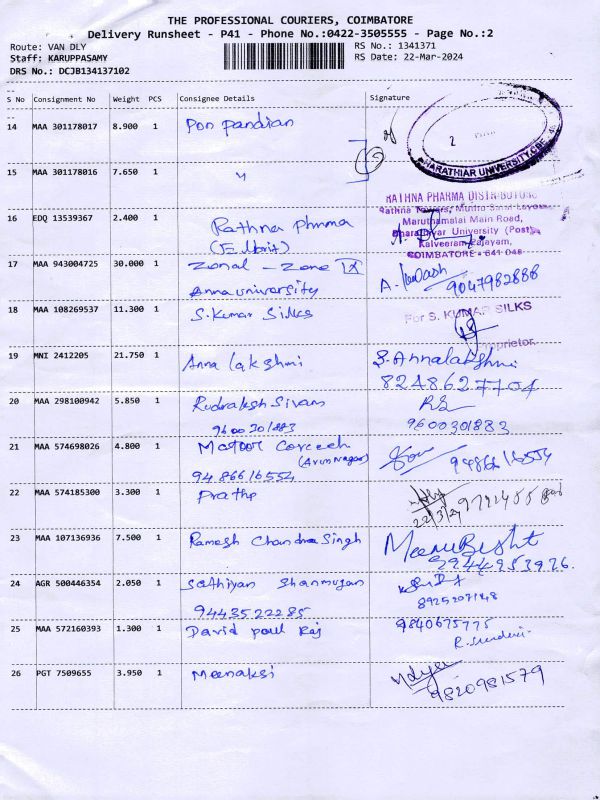 THE PROFESSIONAL COURIERS, COIMBATORE
Delivery Runsheet - P41 - Phone No.:0422-3505555 - Page No.:2
Route: VAN DLY
RS No.: 1341371
Staff: KARUPPASAMY
RS Date: 22-Mar-2024
DRS No.: DCJB134137102
S No Consignment No Weight PCS Consignee Details Signature
14 MAA 301178017 8.900 1 Pon pandian
2
BHARATHIAR UNIVERSITY, CBE
15 MAA 301178016 7.650 1 "
RATHNA PHARMA DISTRIBUTORS
Rathna Towers,
Maruthamalai Main Road,
16 EDQ 13539367 2.400 1 Rathna phrma
Bharathiyar University (Post)
Kalveeram Palayam,
COIMBATORE - 641 046
17 MAA 943004725 30.000 1 Zonal - Zone IX
Anna university
A. 9047982888
18 MAA 108269537 11.300 1 S. Kumar Silks
For S. KUMAR SILKS
Proprietor
19 MNI 2412205 21.750 1 Anna lakshmi
S. Annalakshmi
8248627704
20 MAA 298100942 5.850 1 Rudraksh Sivam
9600301883
9600301883
21 MAA 574698026 4.800 1
(Arun Nagar)
94.86616554
9486616554
22 MAA 574185300 3.300 1 Prathp
22/3/24
23 MAA 107136936 7.500 1 Ramesh Chandra Singh
Meenu Bisht
24 AGR 500446354 2.050 1 Sathiyan Shanmugan
9443522285
8925207148
25 MAA 572160393 1.300 1 David poul Raj
9840675775
26 PGT 7509655 3.950 1 Meenaksi
9820981579